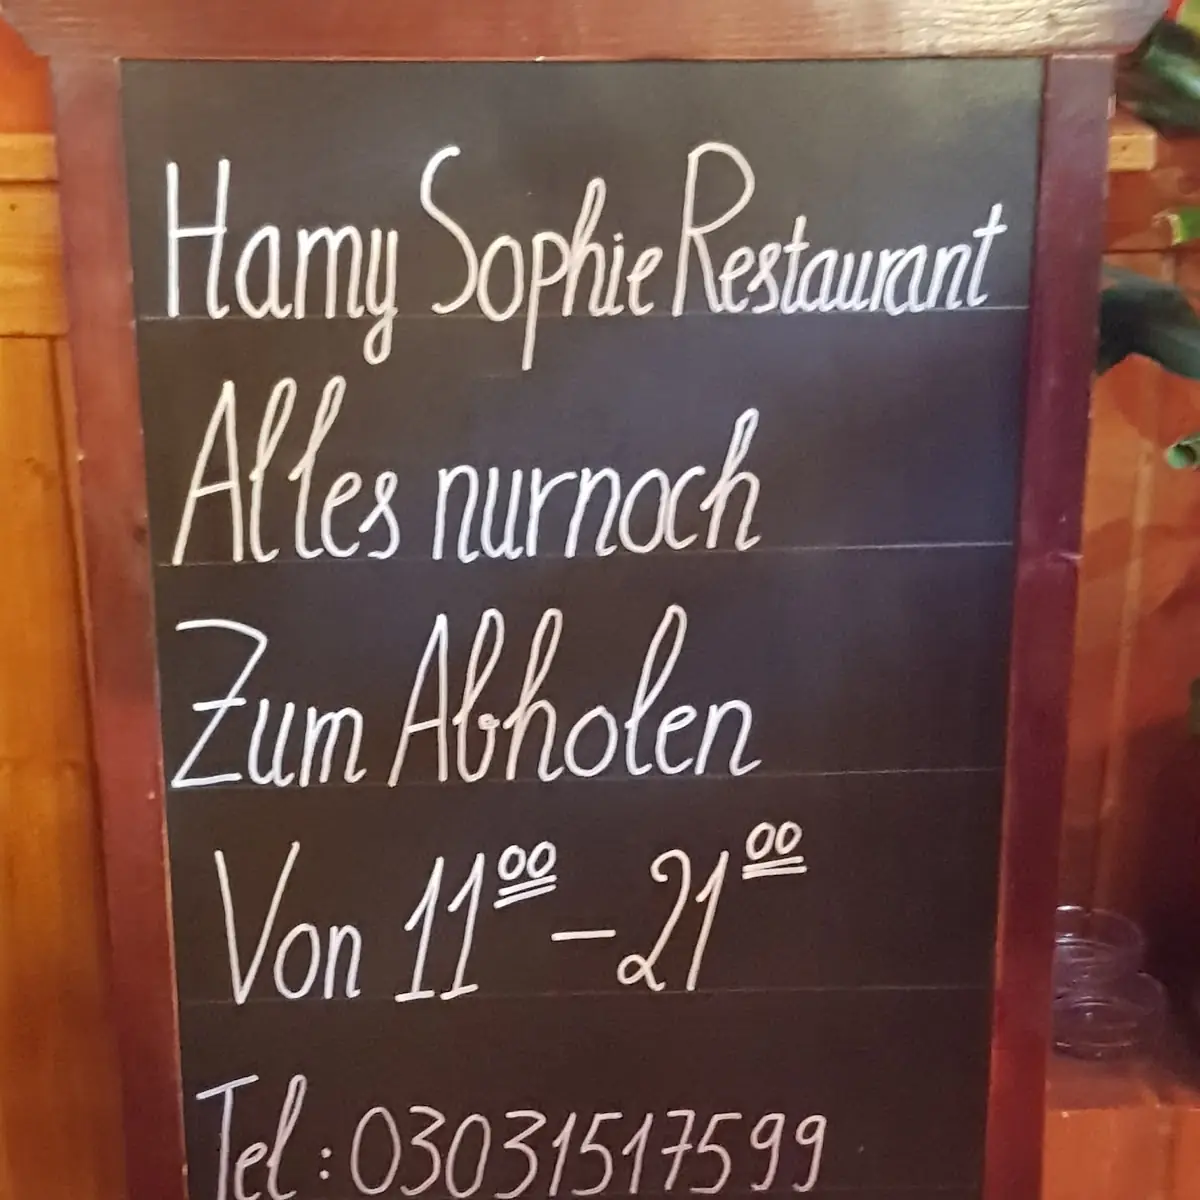 Hamy Sophie Restaurant
Alles nurnoch
Zum Abholen
Von 11⁰⁰ – 21⁰⁰
Tel: 03031517599